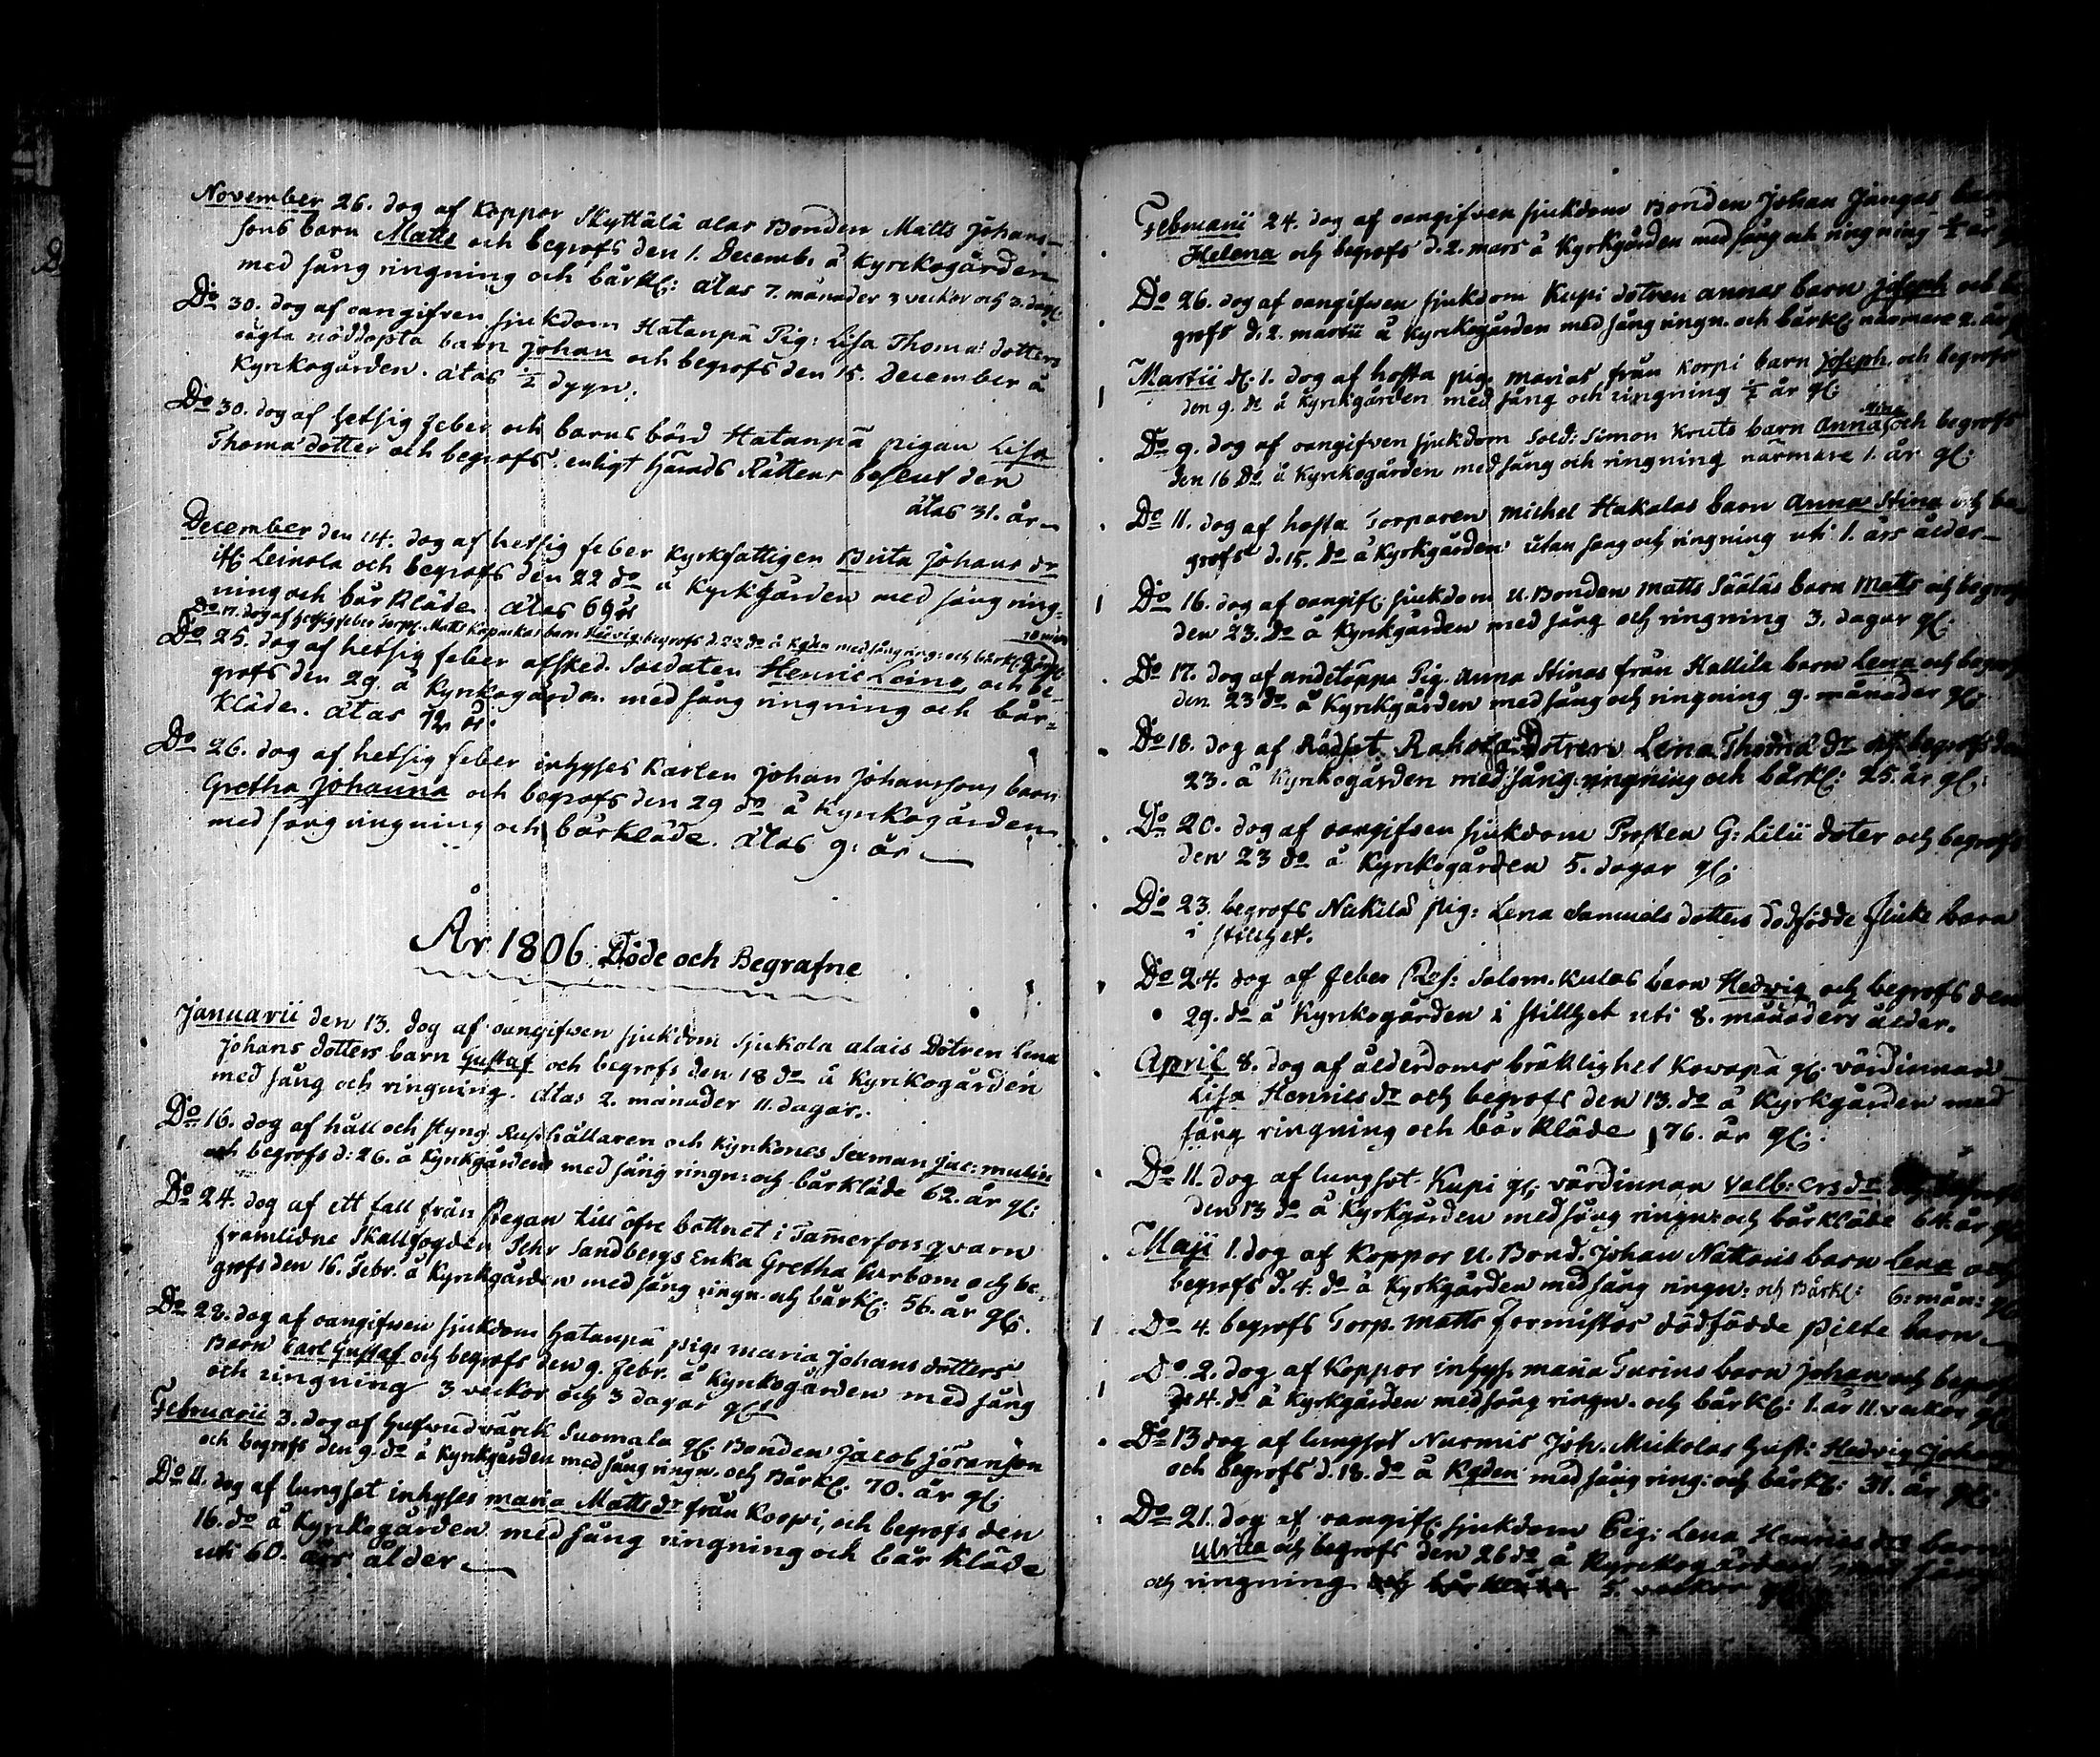 November 26. dog af koppor Skyttälä alas Bonden Matts Johans-
sons barn Matts och begrofs den 1. Decemb. å kyrckogården
med sång ringning och bårkl: ålas 7. månader 3 veckor och 3. dag.
Do 30. dog af oangifven sjukdom Hatanpä Pig: Lisa Thomæ dotters
oägta nöddöpta barn Johan och begrofs den 15. December å
Kyrckogården. ålas ½ dygn.
Do 30. dog af hetsig feber och barns börd Hatanpä pigan Lisa
Thomæ dotter och begrofs enligt Härads Rättens beslut den
ålas 31. år
December den 14. dog af hetsig feber kyrkfattigen Brita Johans dr
ifr Leinola och begrofs den 22 do å Kyrkgården med sång ring-
ning och bårkläde ålas 69 år
Do 17. dog af hetsig feber Torp. Matts barn Hedvig begrofs d. 22 do å Kgdn med sång ring: och bårkl:
Do 25. dog af hetsig feber afsked. Soldaten Henric Leino och be-
grofs den 29. å Kyrckogården med sång ringning och bår-
kläde. ålas 72 år.
Do 26. dog af hetsig feber inhyses Karlen Johan Johanssons barn
Gretha Johanna och begrofs den 29 do å kyrckogården
med sång ringning och bårkläde. ålas 9. år
År 1806 Döde och Begrafne
Januarii den 13. dog af oangifven sjukdom Sjukola alais Dotren Lena
Johans dotters barn Gustaf och begrofs den 18 do å Kyrckogården
med sång och ringning. ålas 2. månader 11. dagar.
Do 16. dog af håll och styng Rusthållaren och Kyrkones Sexman Jac:
och begrofs d: 26. å Kyrkgården med sång ringn: och bårkläde 62. år gl:
Do 24. dog af ett fall från stegan till öfre bottnet i Tamerfors qvarn
framlidne Skallfogden Pehr Sandbergs Enka Gretha och be-
grofs den 16. Febr. å Kyrckgården med sång ringn. och bårkl: 56. år gl:
Do 28. dog af oangifven sjukdom Hatanpä pigs maria Johans dotters
Barn Carl Gustaf och begrofs den 9. febr. å Kyrckogården med sång
och ringning 3 veckor och 3 dagar gl
Februarii 3. dog af hufvudvärck Suomala gl: Bonden Jacob Jöransson
och begrofs den 9. do å Kyrkgården med sång ringn. och Bårkl: 70. år gl:
Do 11. dog af lungsot inhyses maria Matts dr från Korpi, och begrofs den
16. do å Kyrckogården med sång ringning och bår kläde
uti 60. års ålder
Februarii 24. dog af oangifven sjukdom Bonden Johan Jungas barn
Helena och begrofs d. 2. mars å Kyrkgården med sång och ringning ½ år
Do 26. dog af oangifven sjukdom Kupi dotren annas barn Joseph och be
grofs d. 2. martii å Kyrckogården med sång ringn. och bårkl: närmare 2. år
Martii d. 1. dog af hosta pig. marias från Korpi barn Joseph och begrofs
den 9. do å Kyrkgården med sång och ringning ½ år gl:
Do 9. dog af oangifven sjukdom Sold: Simon Kruts barn Anna Stina och begrofs
den 16 Do å Kyrckogården med sång och ringning närmare 1. år gl:
Do 11. dog af hosta Torparen michel Hakalas barn Anna Stina och be-
grofs d. 15. do å Kyrkgården utan sång och ringning uti 1. års ålder
Do 16. dog af oangif: sjukdom U. Bonden matts Sääläs barn Matts och begrofs
den 23. do å Kyrckgården med sång och ringning 3. dagar gl:
Do 17. dog af andetäppa Pig. Anna Stinas från Hallila barn Lena och begrofs
den 23 do å Kyrckgården med sång och ringning 9. månader gl:
Do 18. dog af Rödsot Rahola Dotren Lena Thomæ dr och begrofs den
23. å Kyrckogården med sång. ringning och bårkl: 25. år gl:
Do 20. dog af oangifven sjukdom Prosten G: Lilii doter och begrofs
den 23 do å Kyrckogården 5. dagar gl:
Do 23. begrofs Nickilä pig: Lena Samuels dotters dödfödde flicke barn
i stillhet.
Do 24. dog af feber Salom. Kulas barn Hedvig och begrofs den
29. do å Kyrckogården i stillhet uti 8. månaders ålder.
April 8. dog af ålderdoms bräklighet Kowapä gl: värdinnan
Lisa Henrics dr och begrofs den 13. do å Kyrkgården med
sång ringning och bår kläde 76. år gl:
Do 11. dog af lungsot Kupi gl: värdinnan Valb: Ers dr
den 13 do å Kyrckgården med sång ringn: och bårkläde 64. år gl
Maji 1. dog af Koppor U. Bond. Johan Nattaris barn Lena och
begrofs d. 4. do å Kyrkgården med sång ringn: och Bårkl: 6: mån: gl
Do 4. begrofs Torp. matts dödfödde pilte barn
Do 2. dog af Koppor inhys. maria Turins barn Johan och begrofs
d. 4. do å Kyrkgården med sång ringn. och bårkl: 1. år 11. veckor gl
Do 13 dog af lungsot Nurmis Joh. Mickolas hust: Hedvig Johans
och begrofs d. 18. do å Kgden med sång ring: och bårkl: 31. år gl:
Do 21. dog af oangif: sjukdom Pig: Lena Henrics drs barn
Ulrica och begrofs den 26 do å Kyrckogården med sång
och ringning 5. veckor gl: